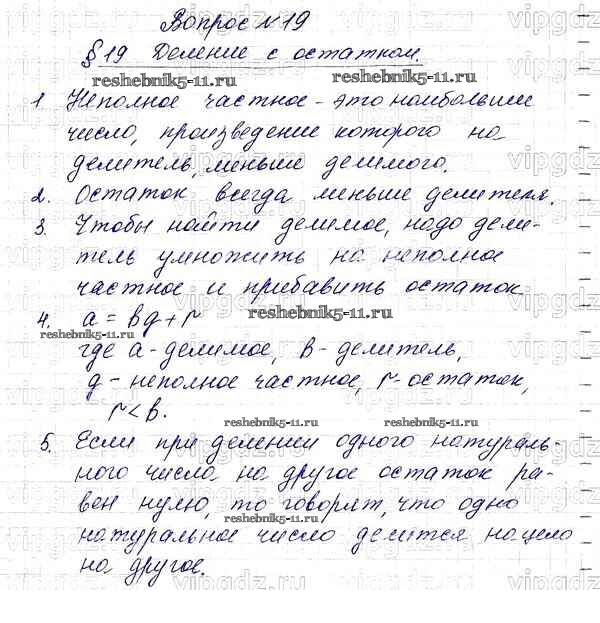 Вопрос №19
§19 Деление с остатком.
reshebnik5-11.ru reshebnik5-11.ru
1. Неполное частное - это наибольшее
число, произведение которого на
делитель, меньше делимого.
2. Остаток всегда меньше делителя.
3. Чтобы найти делимое, надо дели-
тель умножить на неполное
частное и прибавить остаток
4. a = bq + r reshebnik5-11.ru
reshebnik5-11.ru
где a - делимое, b - делитель,
q - неполное частное, r - остаток,
r < b.
reshebnik5-11.ru reshebnik5-11.ru
5. Если при делении одного натураль-
ного числа на другое остаток ра-
вен нулю, то говорят, что одно
reshebnik5-11.ru
натуральное число делится нацело
на другое.
vipgdz.ru